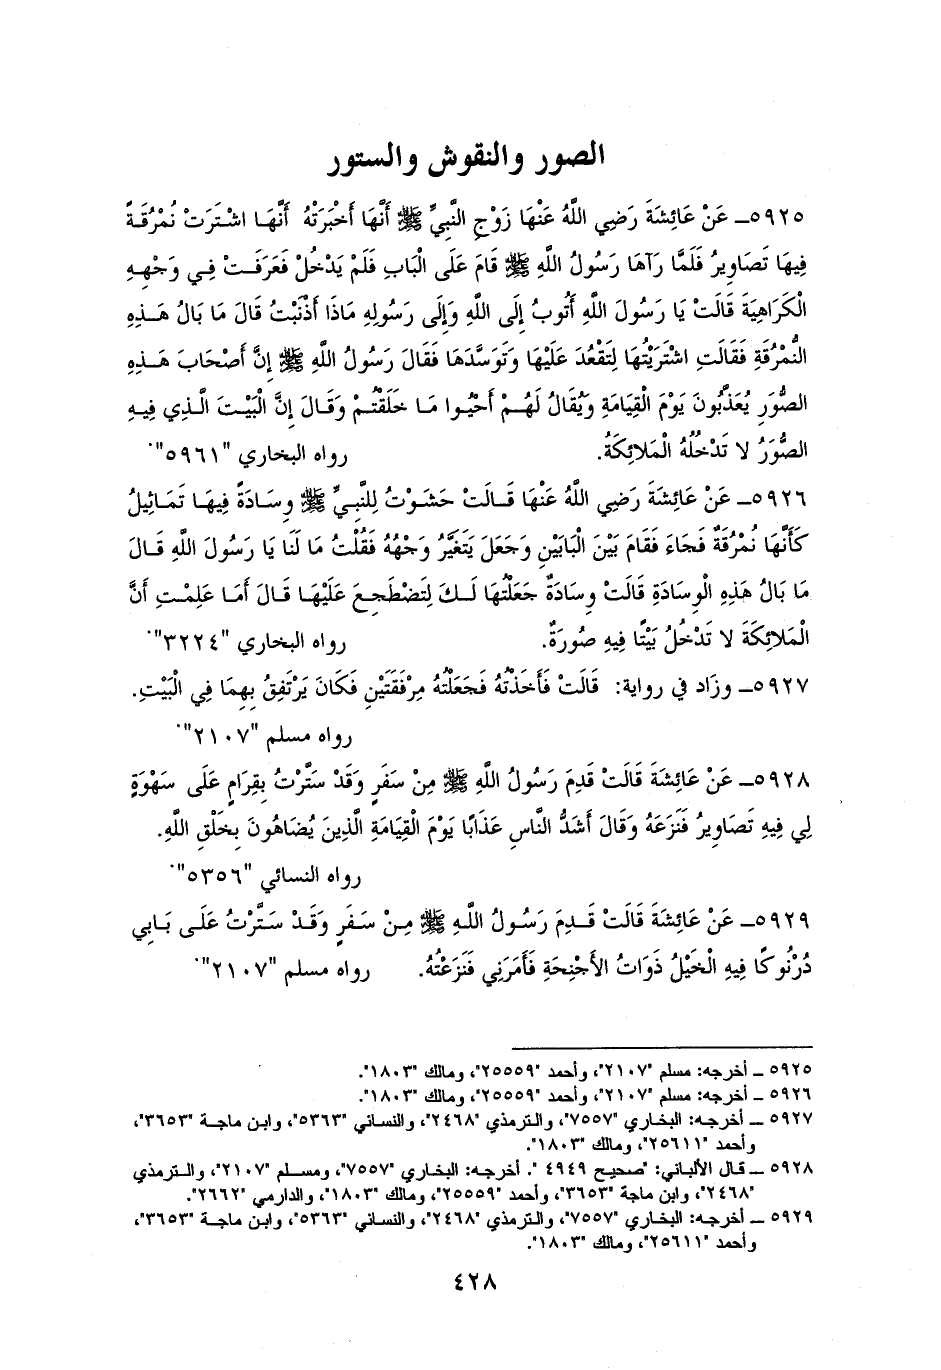 الصور والنقوش والستور
٥٩٢٥ـ عَنْ عَائِشَةَ رَضِي اللَّهُ عَنْهَا زَوْجِ النَّبِيِّ ﷺ أَنَّهَا أَخْبَرَتْهُ أَنَّهَا اشْتَرَتْ نُمْرُقَةً
فِيهَا تَصَاوِيرُ فَلَمَّا رَآهَا رَسُولُ اللَّهِ ﷺ قَامَ عَلَى الْبَابِ فَلَمْ يَدْخُلْ فَعَرَفَتْ فِي وَجْهِهِ
الْكَرَاهِيَةَ قَالَتْ يَا رَسُولَ اللَّهِ أَتُوبُ إِلَى اللَّهِ وَإِلَى رَسُولِهِ مَاذَا أَذْنَبْتُ قَالَ مَا بَالُ هَذِهِ
النُّمْرُقَةِ فَقَالَتِ اشْتَرَيْتُهَا لِتَقْعُدَ عَلَيْهَا وَتَوَسَّدَهَا فَقَالَ رَسُولُ اللَّهِ ﷺ إِنَّ أَصْحَابَ هَذِهِ
الصُّوَرِ يُعَذَّبُونَ يَوْمَ الْقِيَامَةِ وَيُقَالُ لَهُمْ أَحْيُوا مَا خَلَقْتُمْ وَقَالَ إِنَّ الْبَيْتَ الَّذِي فِيهِ
الصُّوَرُ لا تَدْخُلُهُ الْمَلائِكَةُ. رواه البخاري "٥٩٦١".
٥٩٢٦ـ عَنْ عَائِشَةَ رَضِي اللَّهُ عَنْهَا قَالَتْ حَشَوْتُ لِلنَّبِيِّ ﷺ وِسَادَةً فِيهَا تَمَاثِيلُ
كَأَنَّهَا نُمْرُقَةٌ فَجَاءَ فَقَامَ بَيْنَ الْبَابَيْنِ وَجَعَلَ يَتَغَيَّرُ وَجْهُهُ فَقُلْتُ مَا لَنَا يَا رَسُولَ اللَّهِ قَالَ
مَا بَالُ هَذِهِ الْوِسَادَةِ قَالَتْ وِسَادَةٌ جَعَلْتُهَا لَكَ لِتَضْطَجِعَ عَلَيْهَا قَالَ أَمَا عَلِمْتِ أَنَّ
الْمَلائِكَةَ لا تَدْخُلُ بَيْتًا فِيهِ صُورَةٌ. رواه البخاري "٣٢٢٤".
٥٩٢٧ـ وزَاد في رواية: قَالَتْ فَأَخَذْتُهُ فَجَعَلْتُهُ مِرْفَقَتَيْنِ فَكَانَ يَرْتَفِقُ بِهِمَا فِي الْبَيْتِ.
رواه مسلم "٢١٠٧".
٥٩٢٨ـ عَنْ عَائِشَةَ قَالَتْ قَدِمَ رَسُولُ اللَّهِ ﷺ مِنْ سَفَرٍ وَقَدْ سَتَّرْتُ بِقِرَامٍ عَلَى سَهْوَةٍ
لِي فِيهِ تَصَاوِيرُ فَنَزَعَهُ وَقَالَ أَشَدُّ النَّاسِ عَذَابًا يَوْمَ الْقِيَامَةِ الَّذِينَ يُضَاهُونَ بِخَلْقِ اللَّهِ.
رواه النسائي "٥٣٥٦".
٥٩٢٩ـ عَنْ عَائِشَةَ قَالَتْ قَدِمَ رَسُولُ اللَّهِ ﷺ مِنْ سَفَرٍ وَقَدْ سَتَّرْتُ عَلَى بَابِي
دُرْنُوكًا فِيهِ الْخَيْلُ ذَوَاتُ الأَجْنِحَةِ فَأَمَرَنِي فَنَزَعْتُهُ. رواه مسلم "٢١٠٧".
٥٩٢٥ ـ أخرجه: مسلم "٢١٠٧"، وأحمد "٢٥٥٥٩"، ومالك "١٨٠٣".
٥٩٢٦ ـ أخرجه: مسلم "٢١٠٧"، وأحمد "٢٥٥٥٩"، ومالك "١٨٠٣".
٥٩٢٧ ـ أخرجه: البخاري "٧٥٥٧"، والترمذي "٢٤٦٨"، والنسائي "٥٣٦٣"، وابن ماجة "٣٦٥٣"،
وأحمد "٢٥٦١١"، ومالك "١٨٠٣".
٥٩٢٨ ـ قال الألباني: "صحيح ٤٩٤٩ ". أخرجه: البخاري "٧٥٥٧"، ومسلم "٢١٠٧"، والترمذي
"٢٤٦٨"، وابن ماجة "٣٦٥٣"، وأحمد "٢٥٥٥٩"، ومالك "١٨٠٣"، والدارمي "٢٦٦٢".
٥٩٢٩ ـ أخرجه: البخاري "٧٥٥٧"، والترمذي "٢٤٦٨"، والنسائي "٥٣٦٣"، وابن ماجة "٣٦٥٣"،
وأحمد "٢٥٦١١"، ومالك "١٨٠٣".
٤٢٨